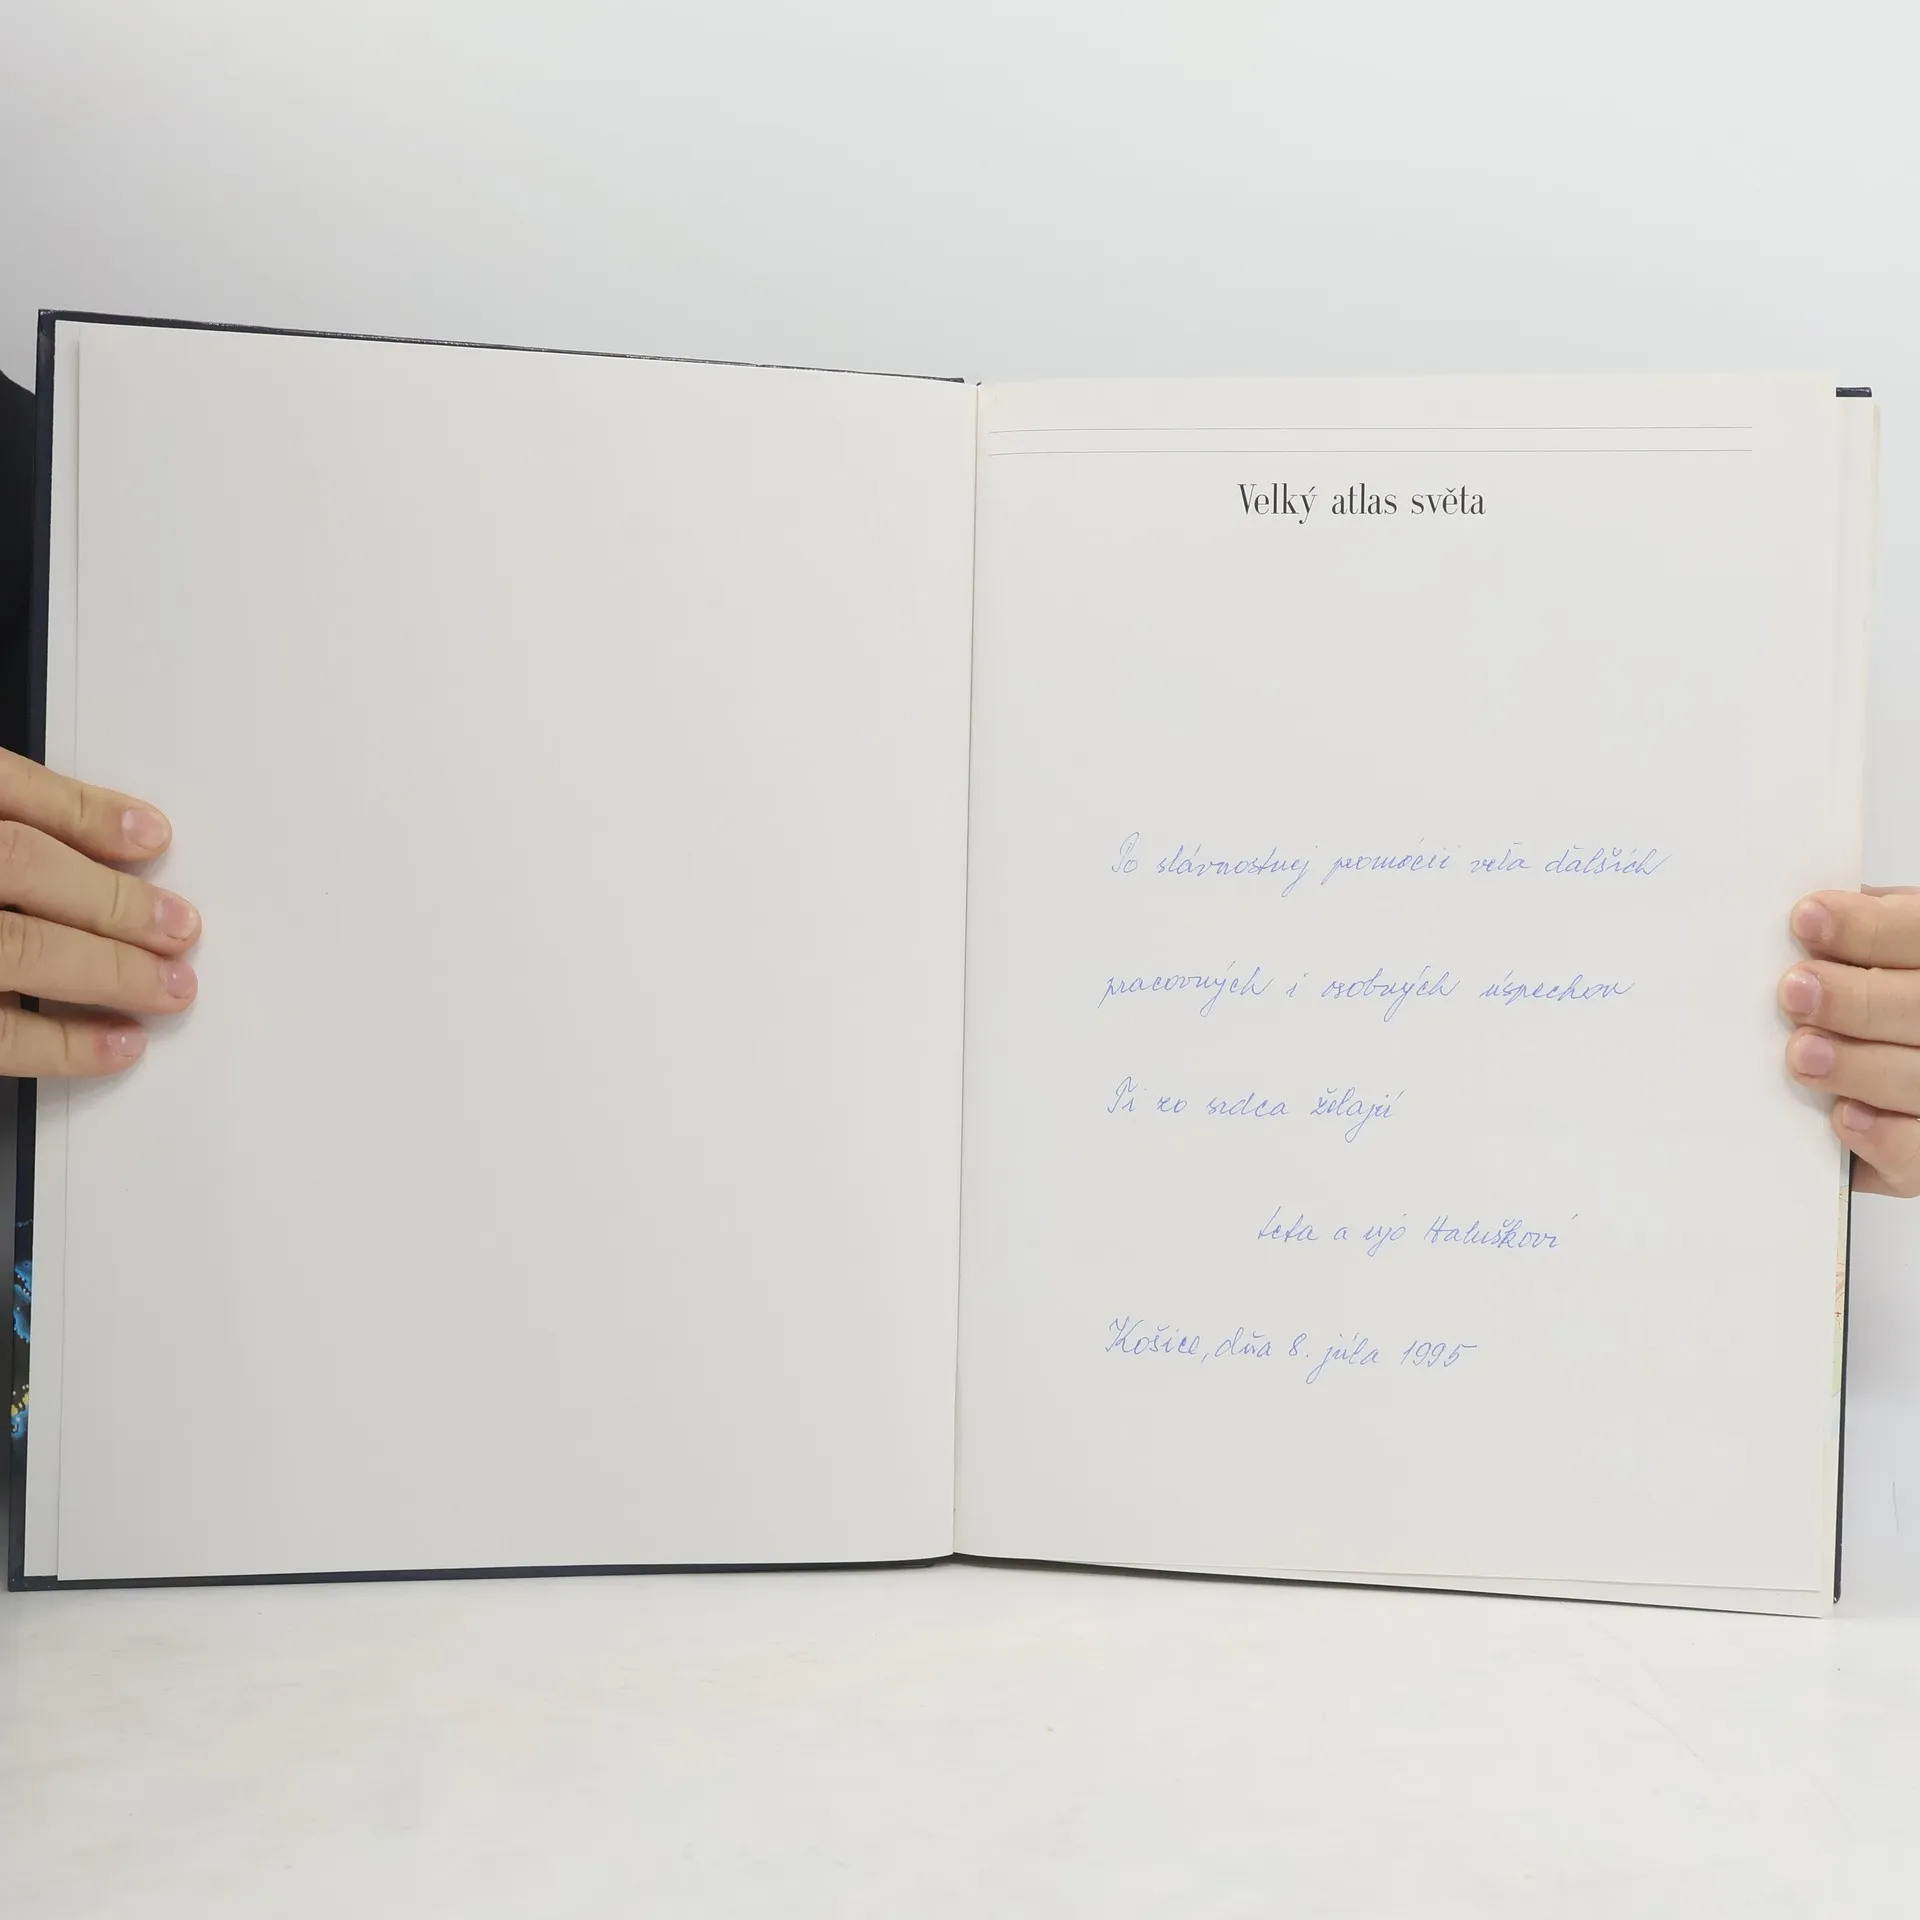 Velký atlas světa
Po slávnostnej promócii veľa ďalších
pracovných i osobných úspechov
Ti zo srdca želajú
teta a ujo Haluškoví
Košice, dňa 8. júla 1995